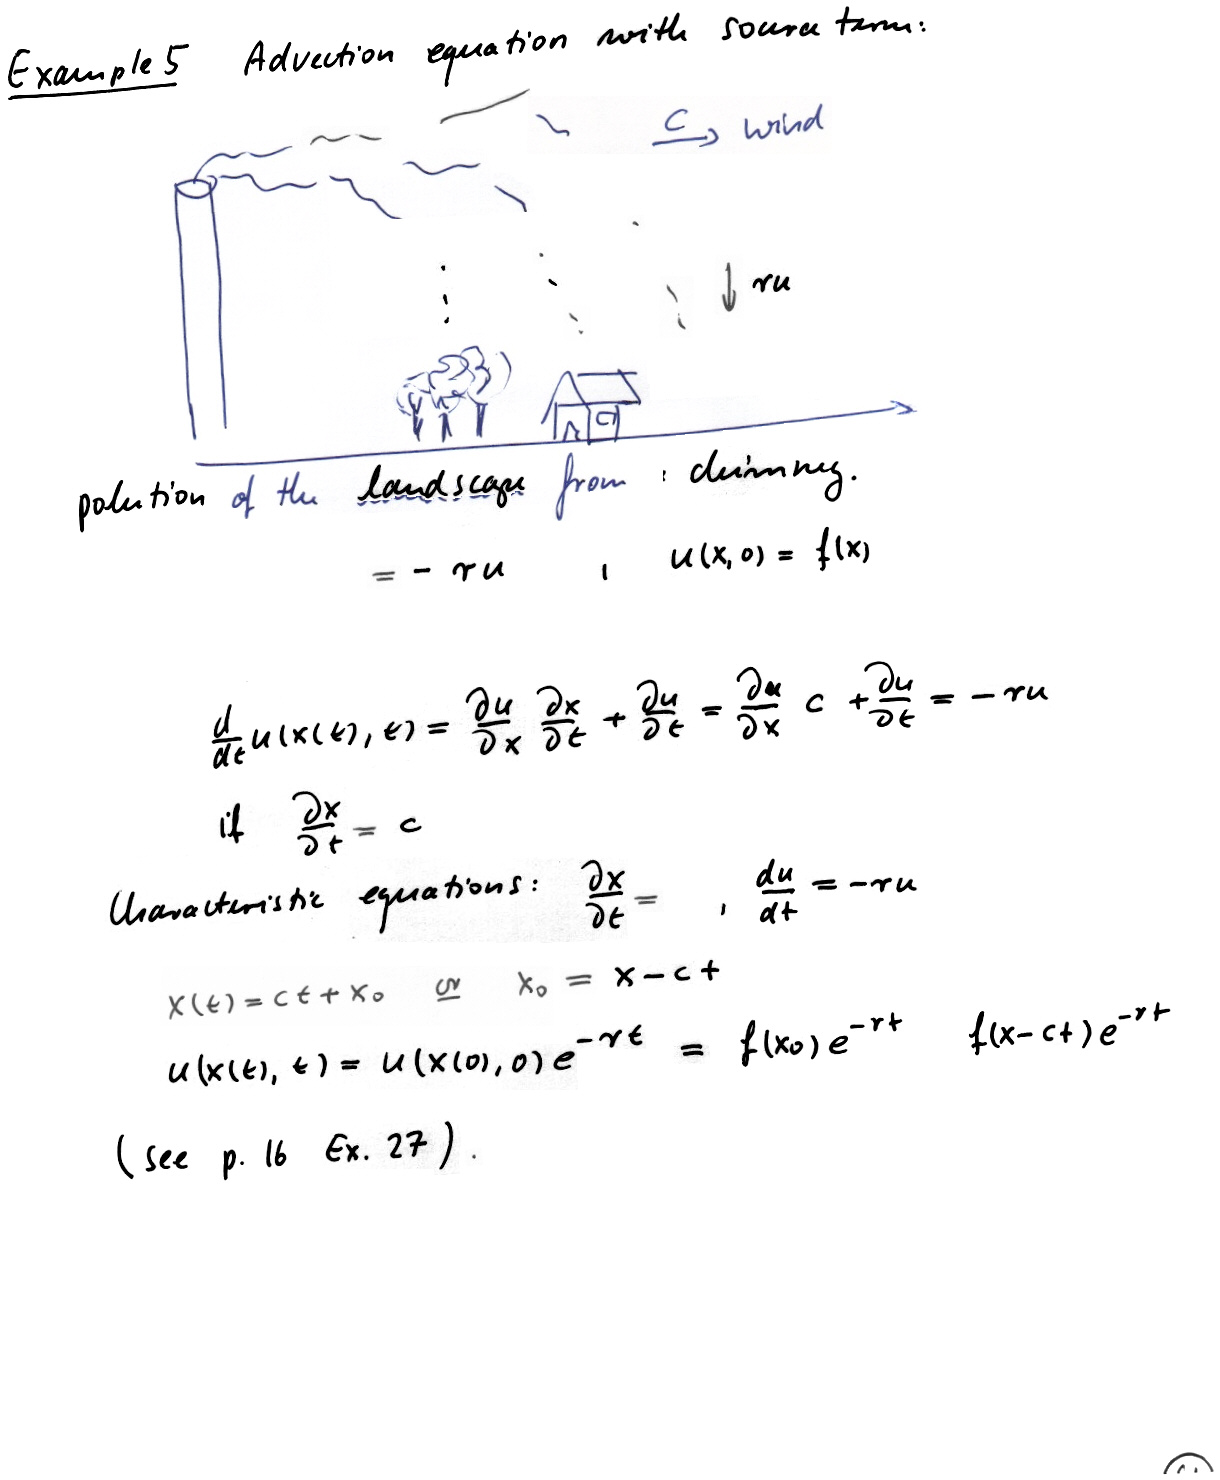 Example 5 Advection equation with source term:
c → wind
↓ ru
polution of the landscape from chimney.
= - ru , u(x,0) = f(x)
d/dt u(x(t), t) = ∂u/∂x ∂x/∂t + ∂u/∂t = ∂u/∂x c + ∂u/∂t = - ru
if ∂x/∂t = c
Characteristic equations: ∂x/∂t = , du/dt = -ru
x(t) = ct + x₀ or x₀ = x - ct
u(x(t), t) = u(x(0), 0) e^{-rt} = f(x₀) e^{-rt} f(x-ct) e^{-rt}
(see p. 16 Ex. 27).